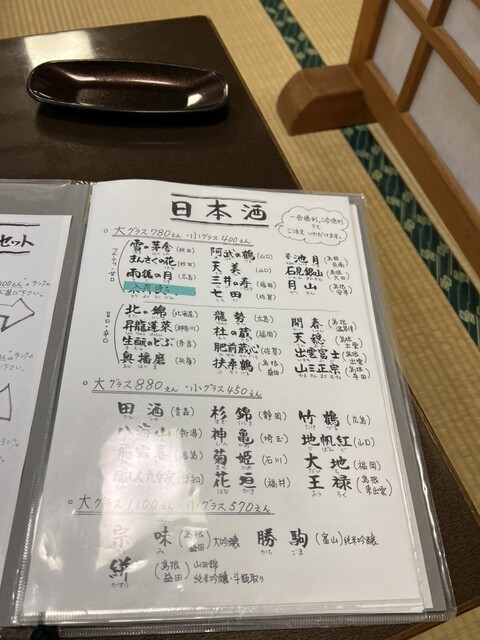 セット
日本酒
一合徳利、二合徳利
でも
ご注文いただけます。
○ 大グラス780えん ・小グラス400えん
フルーティー・甘口
雪の茅舎(秋田) 阿武の鶴(山口) 誉池月(島根 邑南)
まんさくの花(秋田) 天美(山口) 石見銀山(島根 大田)
雨後の月(広島) 三井の寿(福岡) 月山(島根 安来)
入荷待ち 七田(佐賀)
旨口・辛口
北の錦(北海道) 龍勢(広島) 開春(島根 温泉津)
昇龍蓬莱(神奈川) 杜の蔵(福岡) 天穏(島根 出雲)
生酛のどぶ(奈良) 肥前蔵心(佐賀) 出雲富士(島根 出雲)
奥播磨(兵庫) 扶桑鶴(島根 益田) 山三正宗(島根)
○ 大グラス880えん ・小グラス450えん
田酒(青森) 杉錦(静岡) 竹鶴(広島)
八海山(新潟) 神亀(埼玉) 地帆紅(山口)
菊姫(石川) 大地(福岡)
花垣(福井) 王禄(島根 東出雲)
○ 大グラス1100えん 小グラス570えん
宗味(島根 益田)大吟醸 勝駒(富山)純米吟醸
(島根 益田)山田錦
純米吟醸・斗瓶取り